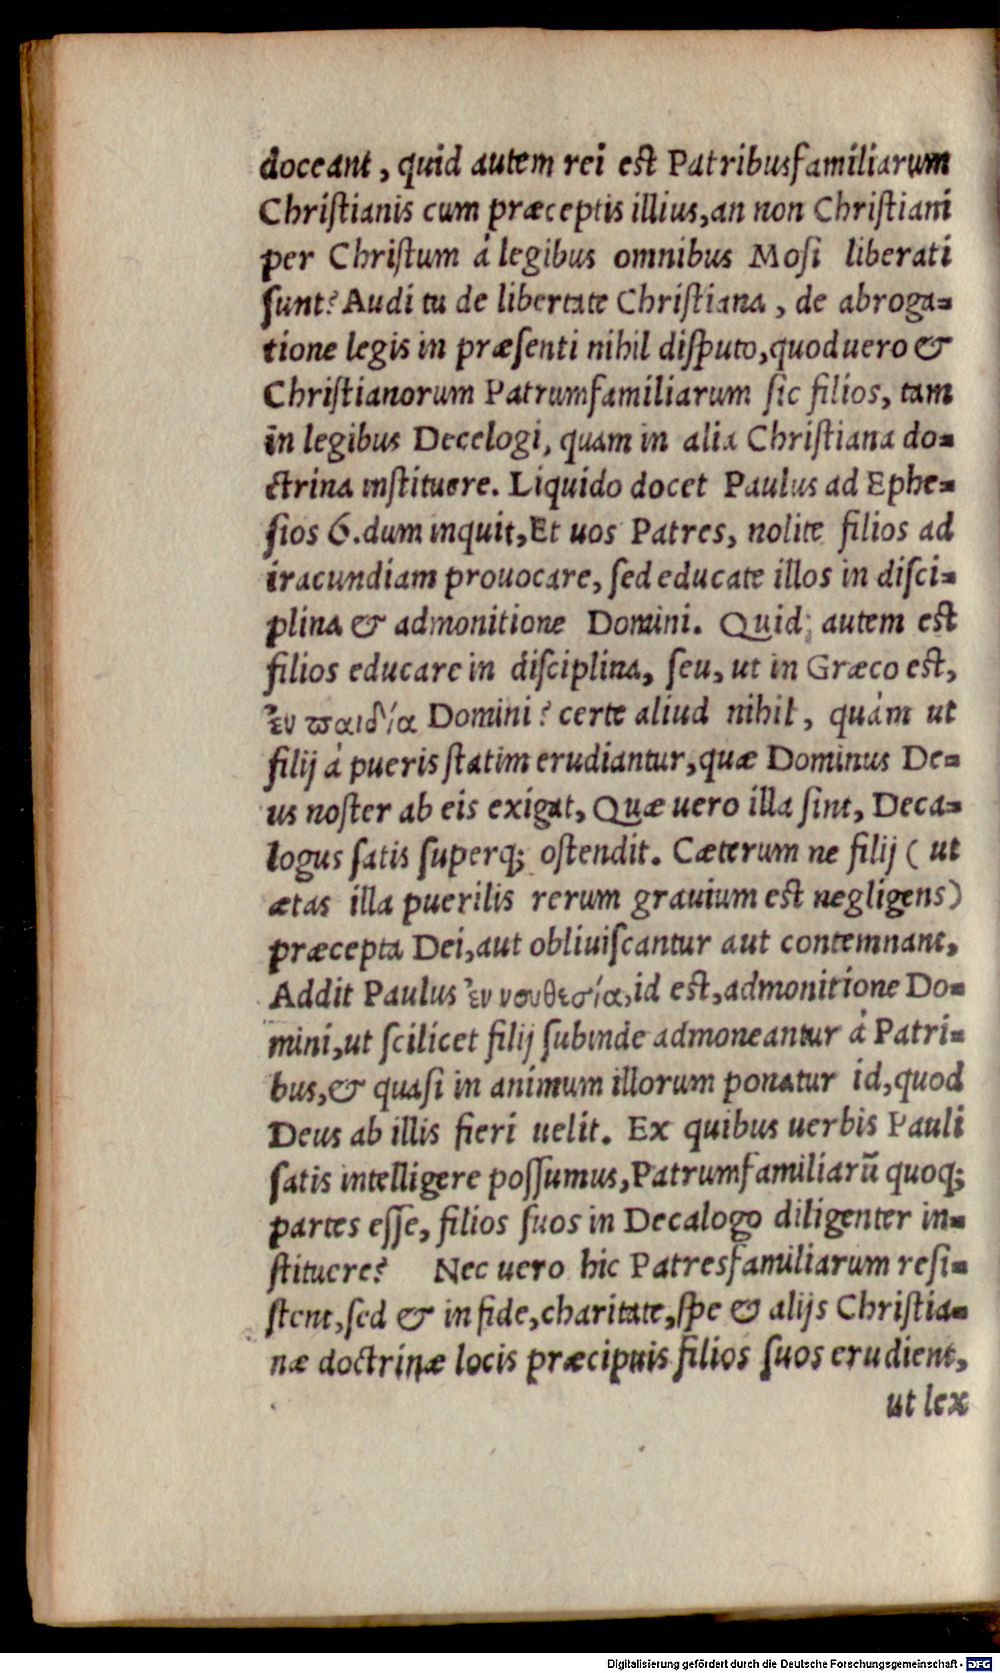 doceant, quid autem rei est Patribusfamiliarum
Chriſtianis cum præceptis illius, an non Chriſtiani
per Chriſtum à legibus omnibus Moſi liberati
ſunt? Audi tu de libertate Chriſtiana, de abroga=
tione legis in præſenti nihil diſputo, quod uero &
Chriſtianorum Patrumfamiliarum ſic filios, tam
in legibus Decelogi, quam in alia Chriſtiana do=
ctrina inſtituere. Liquido docet Paulus ad Ephe=
ſios 6. dum inquit, Et uos Patres, nolite filios ad
iracundiam prouocare, ſed educate illos in diſci=
plina & admonitione Domini. Quid; autem est
filios educare in diſciplina, ſeu, ut in Græco est,
ἐν παιδία Domini? certe aliud nihil, quàm ut
filij à pueris ſtatim erudiantur, quæ Dominus De=
us noſter ab eis exigat, Quæ uero illa ſint, Deca=
logus ſatis ſuperq; oſtendit. Cæterum ne filij (ut
ætas illa puerilis rerum grauium est negligens)
præcepta Dei, aut obliuiſcantur aut contemnant,
Addit Paulus ἐν νουθεσία, id est, admonitione Do=
mini, ut ſcilicet filij ſubinde admoneantur à Patri=
bus, & quaſi in animum illorum ponatur id, quod
Deus ab illis fieri uelit. Ex quibus uerbis Pauli
ſatis intelligere poſſumus, Patrumfamiliarū quoq;
partes eſſe, filios ſuos in Decalogo diligenter in=
ſtituere? Nec uero hic Patresfamiliarum reſi=
ſtent, ſed & in fide, charitate, ſpe & alijs Chriſtia=
næ doctrinæ locis præcipuis filios ſuos erudient,
ut lex
Digitalisierung gefördert durch die Deutsche Forschungsgemeinschaft - DFG